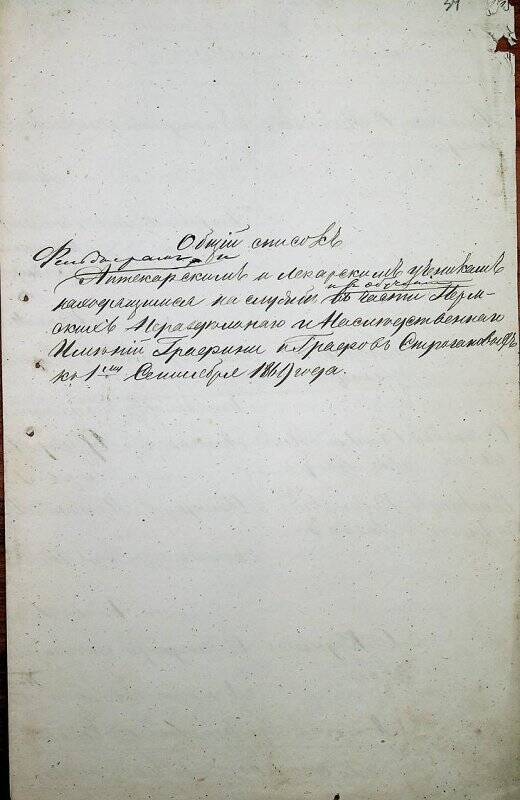 34
Общій списокъ
Фельдшерамъ
Аптекарскимъ и Лекарскимъ ученикамъ
и въ обученіи
находящимся на службѣ въ части Перм-
скихъ Нераздѣльнаго и Наслѣдственнаго
Имѣній Графини и Графовъ Строгановыхъ
къ 1му Сентября 1861 года.